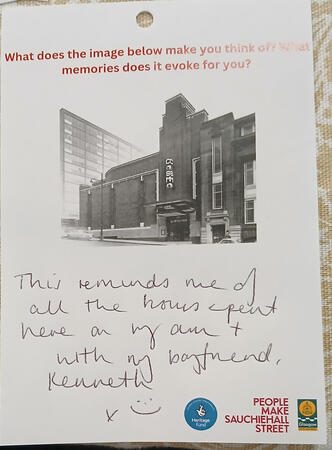 What does the image below make you think of? What
memories does it evoke for you?
This reminds me of
all the hours spent
here on my own +
with my boyfriend,
Kenneth
x
Heritage
Fund
PEOPLE
MAKE
SAUCHIEHALL
STREET
Glasgow